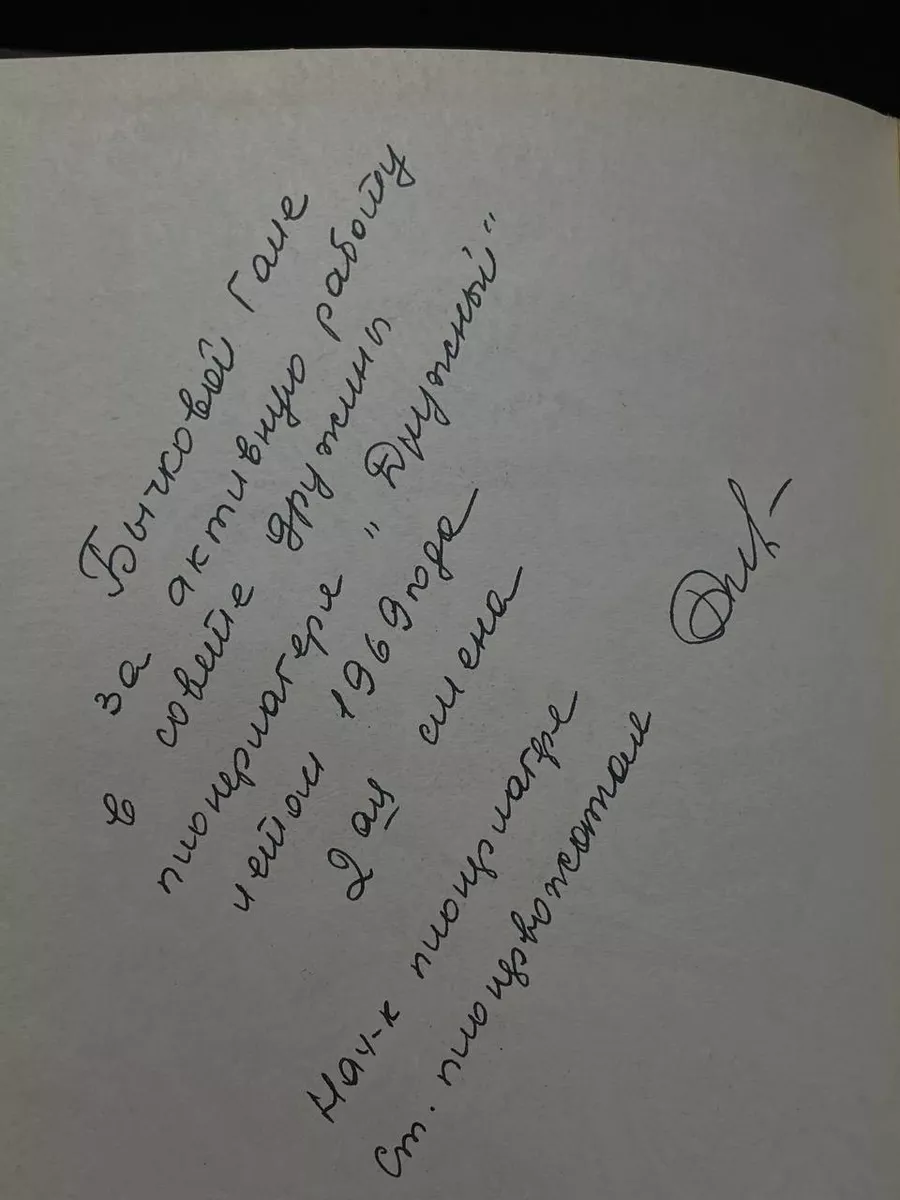 Бычковой Гале
за активную работу
в совете дружины
пионерлагеря „Дружный“
летом 1969 года
2ая смена
Нач-к пионерлагеря
Ст. пионервожатая